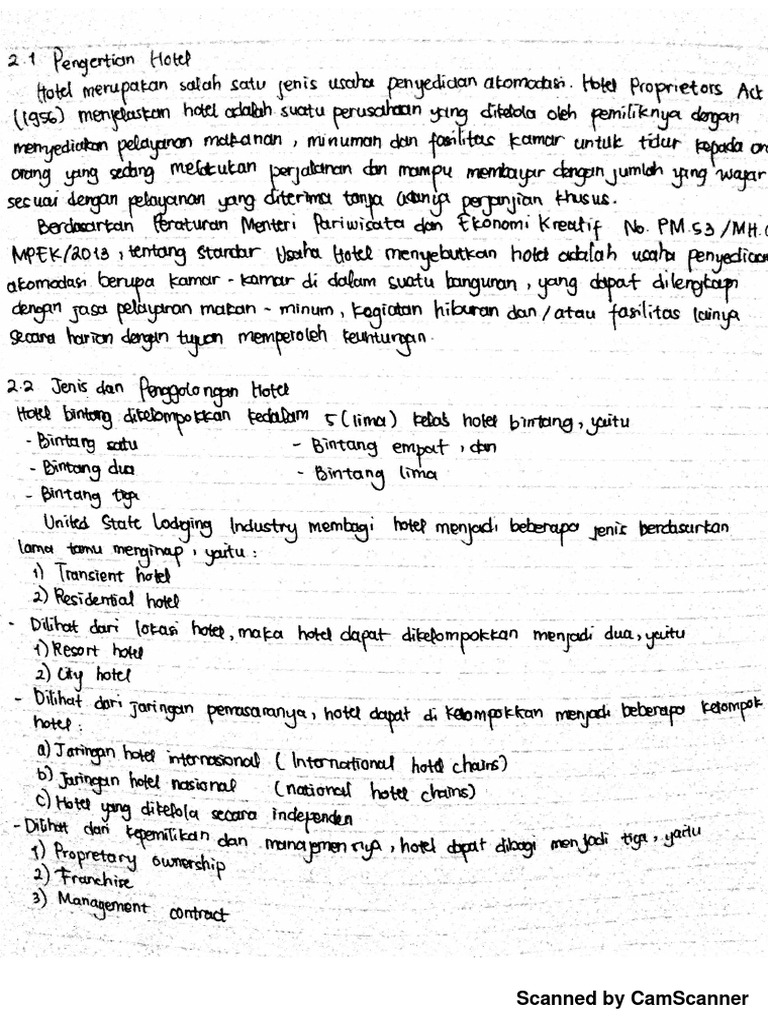 2.1 Pengertian Hotel
Hotel merupakan salah satu jenis usaha penyediaan akomodasi. Hotel Proprietors Act
(1956) menjelaskan hotel adalah suatu perusahaan yang dikelola oleh pemiliknya dengan
menyediakan pelayanan makanan, minuman dan fasilitas kamar untuk tidur kepada oran
orang yang sedang melakukan perjalanan dan mampu membayar dengan jumlah yang wajar
sesuai dengan pelayanan yang diterima tanpa adanya perjanjian khusus.
Berdasarkan Peraturan Menteri Pariwisata dan Ekonomi Kreatif No. PM.53/MH.0
MPEK/2013, tentang Standar Usaha Hotel menyebutkan hotel adalah usaha penyediaan
akomodasi berupa kamar-kamar di dalam suatu bangunan, yang dapat dilengkapi
dengan jasa pelayanan makan-minum, kegiatan hiburan dan/atau fasilitas lainya
secara harian dengan tujuan memperoleh keuntungan.
2.2 Jenis dan Penggolongan Hotel
Hotel bintang dikelompokkan kedalam 5 (lima) kelas hotel bintang, yaitu
- Bintang satu - Bintang empat, dan
- Bintang dua - Bintang lima
- Bintang tiga
United State Lodging Industry membagi hotel menjadi beberapa jenis berdasarkan
lama tamu menginap, yaitu:
1) Transient hotel
2) Residential hotel
- Dilihat dari lokasi hotel, maka hotel dapat dikelompokkan menjadi dua, yaitu
1) Resort hotel
2) City hotel
- Dilihat dari jaringan pemasaranya, hotel dapat di kelompokkan menjadi beberapa kelompok
hotel:
a) Jaringan hotel internasional (International hotel chains)
b) Jaringan hotel nasional (national hotel chains)
c) Hotel yang dikelola secara independen
- Dilihat dari kepemilikan dan manajemennya, hotel dapat dibagi menjadi tiga, yaitu
1) Propretary ownership
2) Franchise
3) Management contract
Scanned by CamScanner